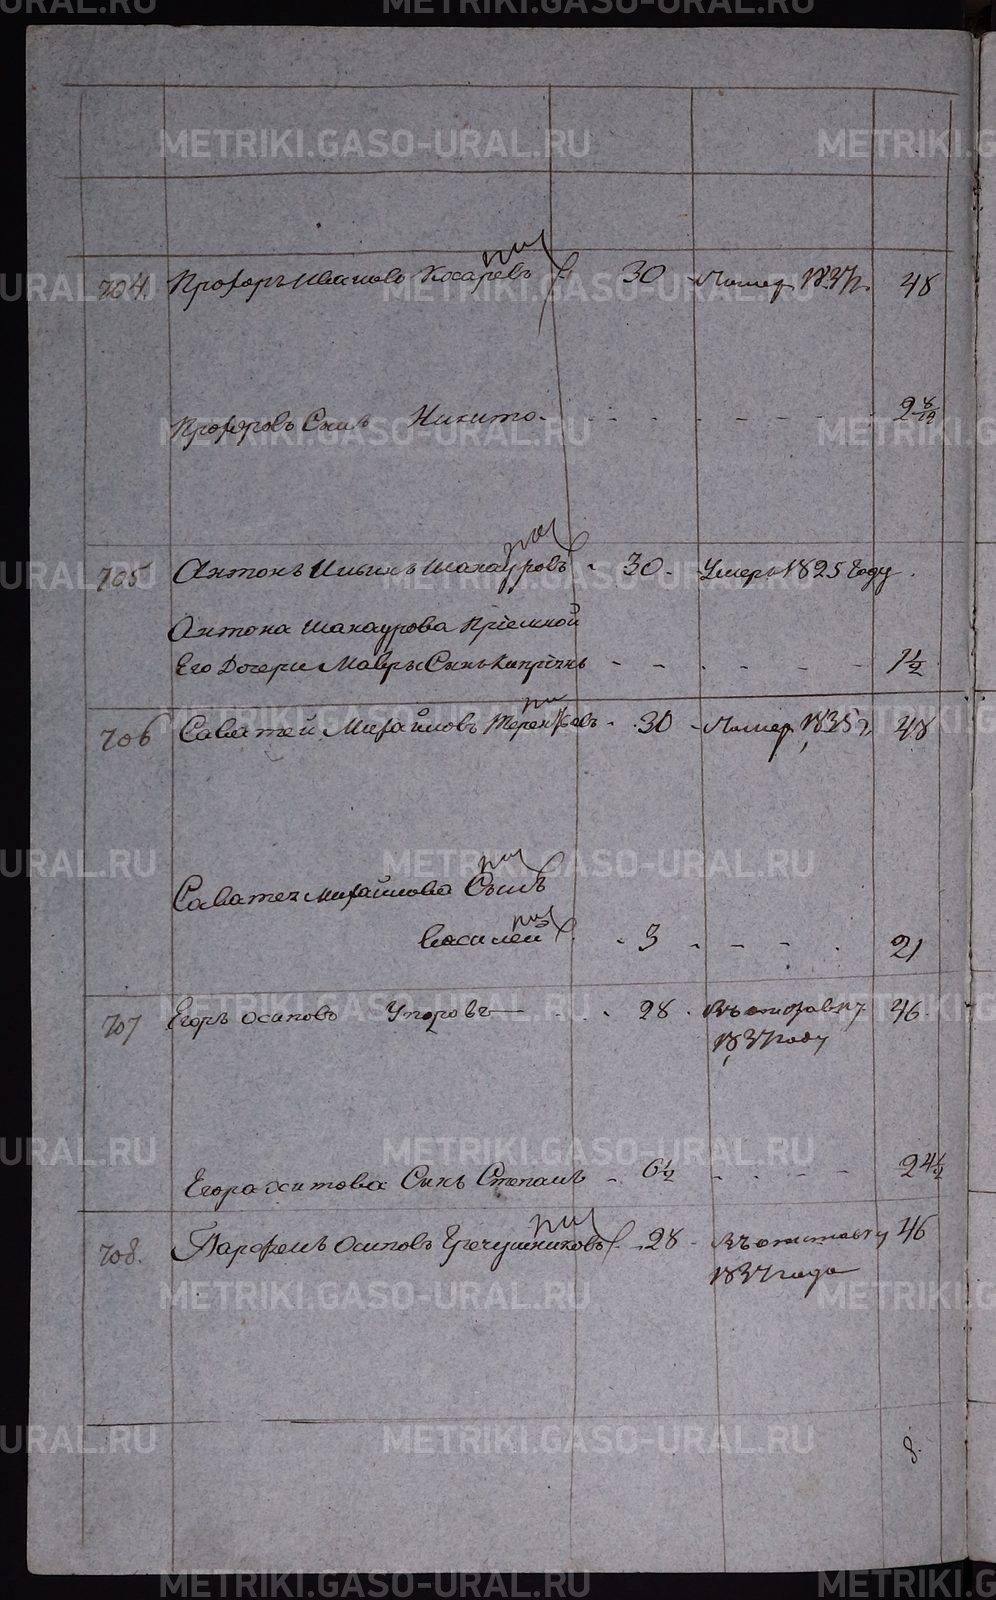 METRIKI.GASO-URAL.RU
704. Прохоръ Ивановъ Косаревъ 30 - 1837г. 48
Прохоровъ Сынъ Никита 2 8/12
705 Антонъ Ильинъ Шакауровъ - 30 - Умеръ 1825 году.
Антона Шакаурова Пріемной
Его Дочери Мавры Сынъ 1½
706 Саватей Михайловъ Терентьевъ - 30 - 1835 г. 48
Саватея Михайлова Сынъ
Василей - 3 21
707 Егоръ Осиповъ Упоровъ - 28 . 46
1837 году
Егора Сынъ Степанъ - 6½ 24½
708. Парфенъ Осиповъ Гречушниковъ - 28 - Въ отставку 46
1837 года
8.